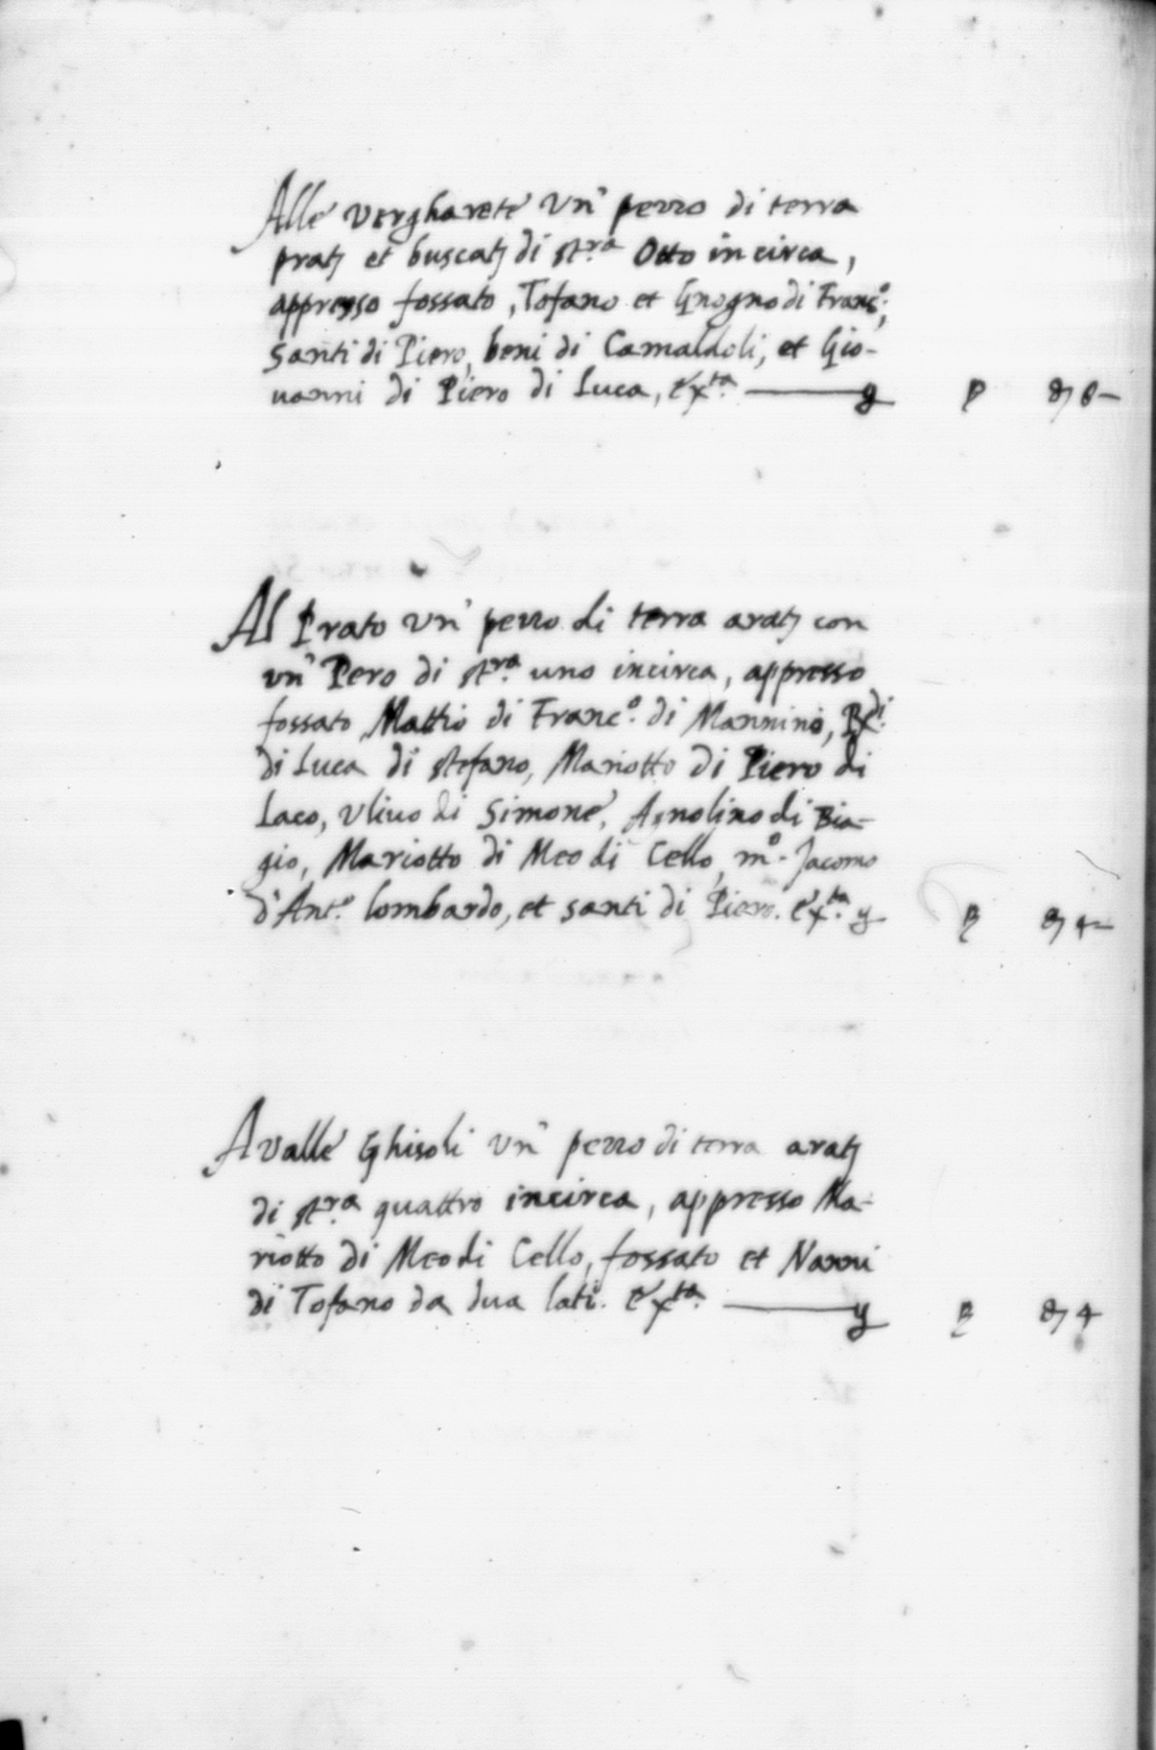 Alle vergharete un' pezzo di terra
prat; et buscat; di st.ra Otto incirca,
appresso fossato, Tofano et Gnogno di Franc.o;
Santi di Piero, beni di Camaldoli, et Gio-
uanni di Piero di Luca, etx.ta
Al Prato un' pezzo di terra arat; con
un' Pero di st.ra uno incirca, appresso
fossato, Mattio di Franc.o di Mannino, Rx.di
di Luca di stefano, Mariotto di Piero di
Laco, Vliuo di Simone, Agnolino di Bia-
gio, Mariotto di Meo di Cello, m.o Jacomo
d'Ant.o lombardo, et santi di Piero. etx.ta
A valle Ghisoli un' pezzo di terra arat;
di st.ra quattro incirca, appresso Ma-
riotto di Meo di Cello, fossato et Nanni
di Tofano da dua lati. etx.ta